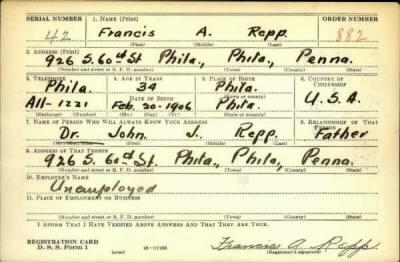 SERIAL NUMBER 1. NAME (Print) ORDER NUMBER
42 Francis A. Repp. 882
(First) (Middle) (Last)
2. ADDRESS (Print)
926 S. 60th St Phila., Phila., Penna.
(Number and street or R. F. D. number) (Town) (County) (State)
3. TELEPHONE 4. AGE IN YEARS 5. PLACE OF BIRTH 6. COUNTRY OF CITIZENSHIP
Phila. 34 Phila.
DATE OF BIRTH (Town or county)
All-1221 Feb. 20-1906 Phila. U.S.A.
(Exchange) (Number) (Mo.) (Day) (Yr.) (State or country)
7. NAME OF PERSON WHO WILL ALWAYS KNOW YOUR ADDRESS 8. RELATIONSHIP OF THAT PERSON
Dr. John J. Repp. Father
(Mr., Mrs., Miss) (First) (Middle) (Last)
9. ADDRESS OF THAT PERSON
926 S. 60th St. Phila., Phila, Penna.
(Number and street or R. F. D. number) (Town) (County) (State)
10. EMPLOYER'S NAME
Unemployed
11. PLACE OF EMPLOYMENT OR BUSINESS
(Number and street or R. F. D. number) (Town) (County) (State)
I AFFIRM THAT I HAVE VERIFIED ABOVE ANSWERS AND THAT THEY ARE TRUE.
REGISTRATION CARD
D. S. S. Form 1 (over) 16-17105 Francis A. Repp.
(Registrant's signature)